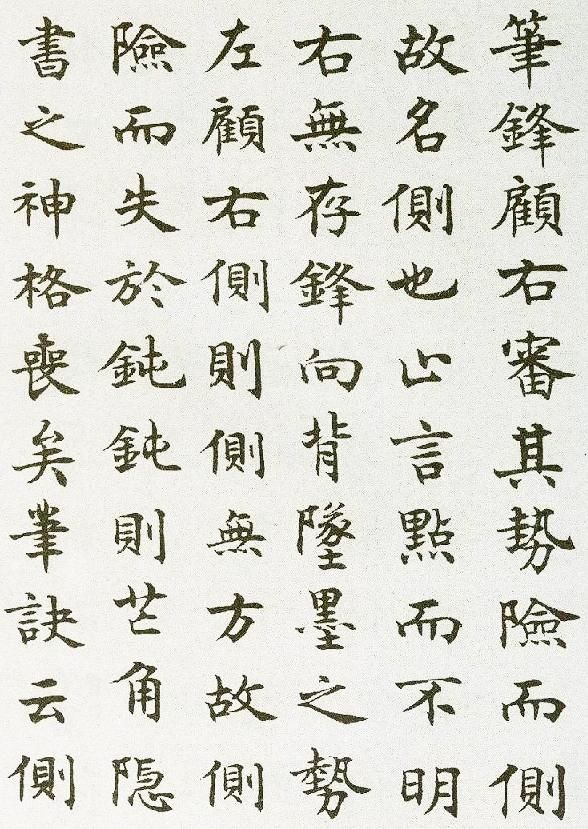 筆鋒顧右審其勢險而側
故名側也止言點而不明
右無存鋒向背墜墨之勢
左顧右側則側無方故側
險而失於鈍鈍則芒角隐
書之神格喪矣筆訣云側